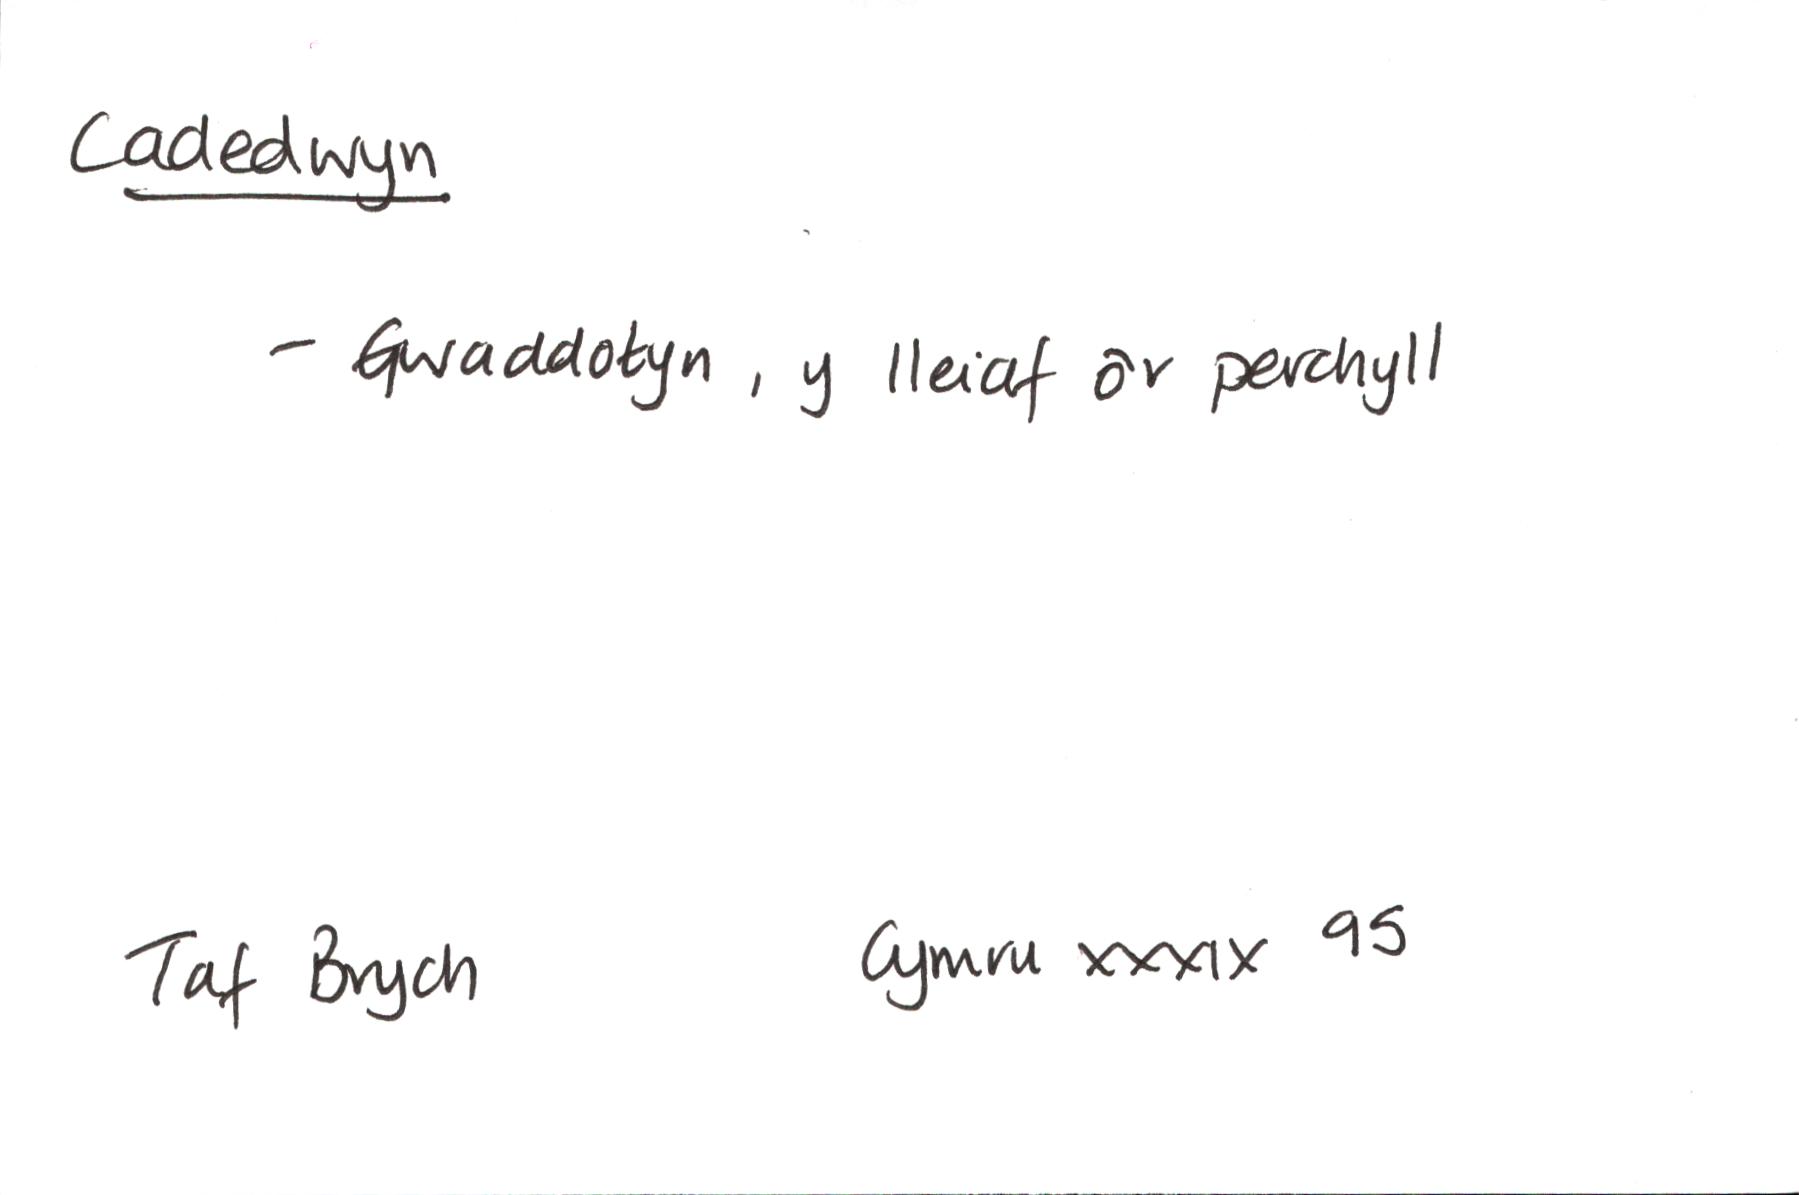 Cadedwyn
- Gwaddotyn, y lleiaf o'r perchyll
Taf Brych Cymru XXXIX 95